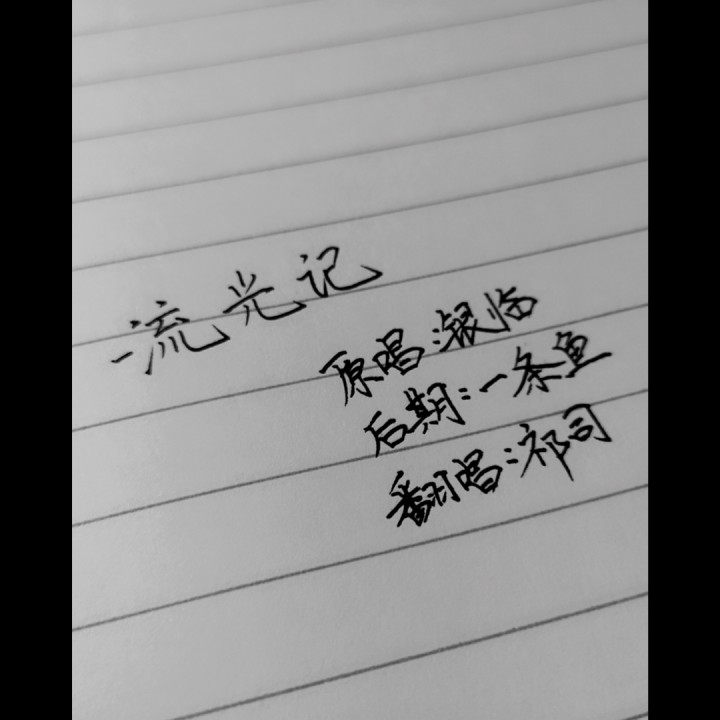 一流光记
原唱:银临
后期:一条鱼
翻唱:祁司